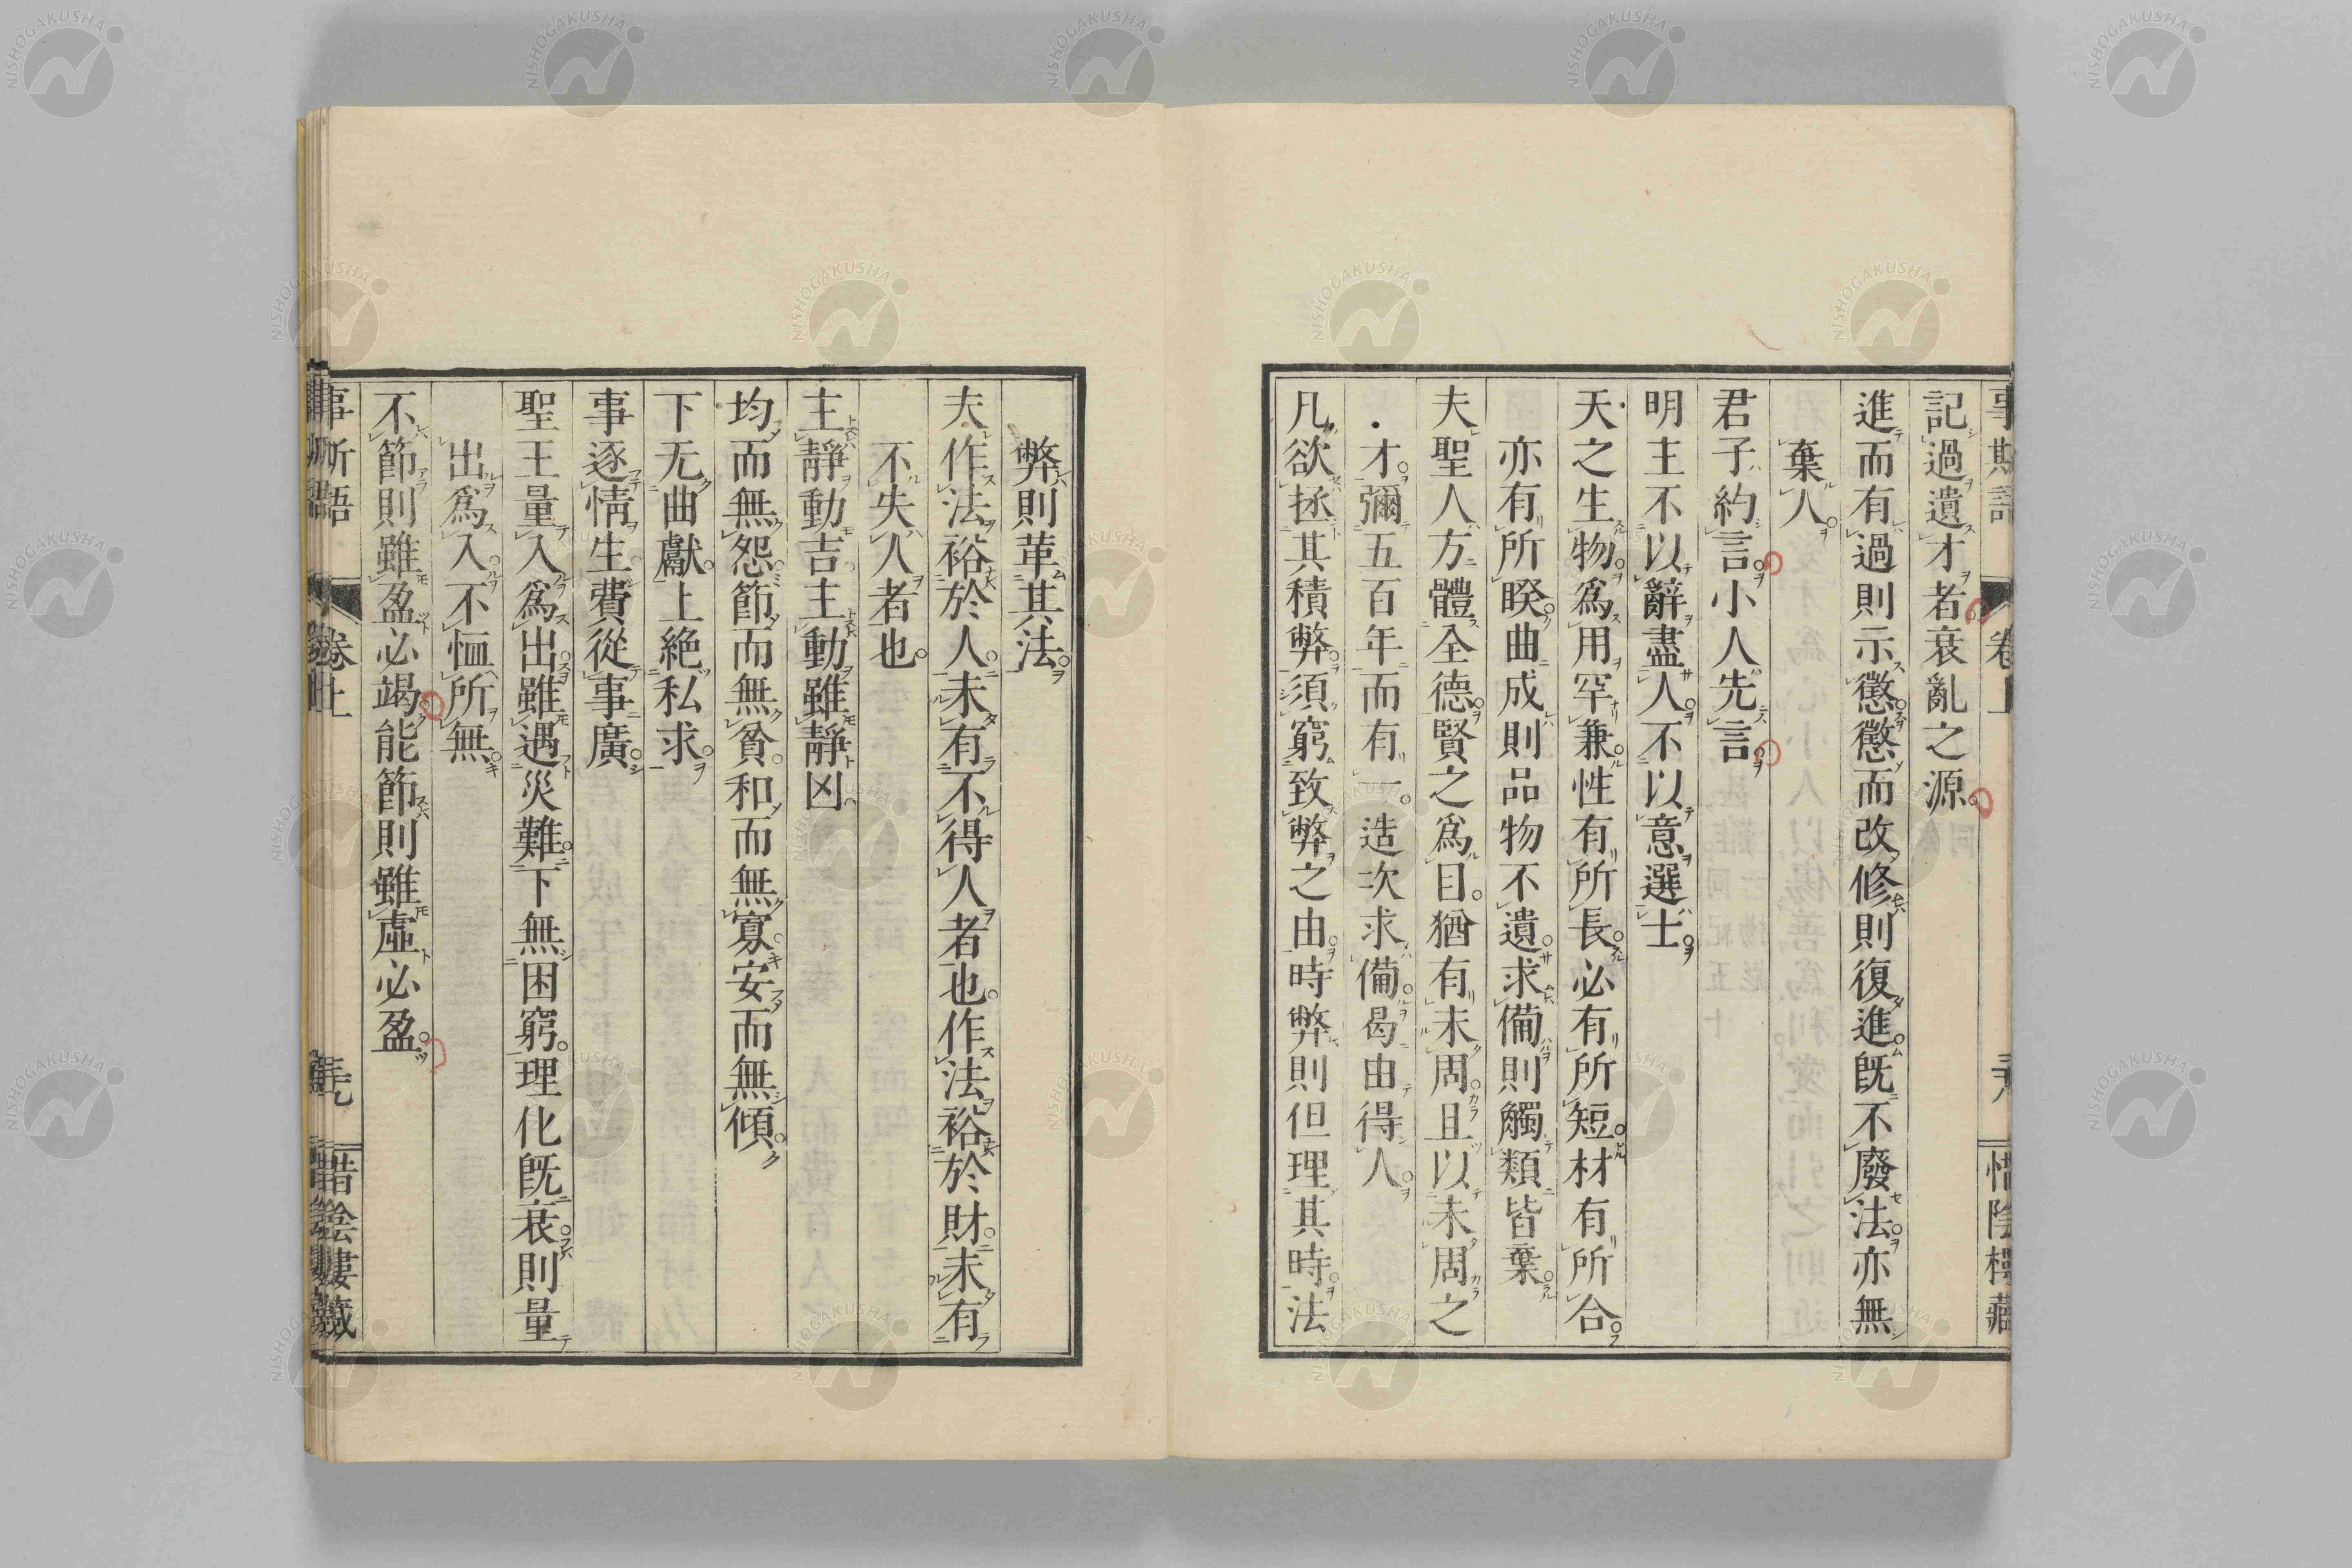 記過遺才者衰亂之源
進而有過則示懲懲而改修則復進既不廢法亦無
棄人
君子約言小人先言
明主不以辭盡人不以意選士
天之生物爲用罕兼性有所長必有所短材有所合
亦有所睽曲成則品物不遺求備則觸類皆棄
夫聖人方體全德賢之爲目猶有未周且以未周之
才彌五百年而有一造次求備曷由得人
凡欲拯其積弊須窮致弊之由時弊則但理其時法
弊則革其法
夫作法裕於人未有不得人者也作法裕於財未有
不失人者也
主靜動吉主動雖靜凶
均而無怨節而無貧和而無寡安而無傾
下无曲獻上絶私求
事逐情生費從事廣
聖王量入爲出雖遇災難下無困窮理化既衰則量
出爲入不恤所無
不節則雖盈必竭能節則雖虛必盈
卷上
NISHOGAKUSHA